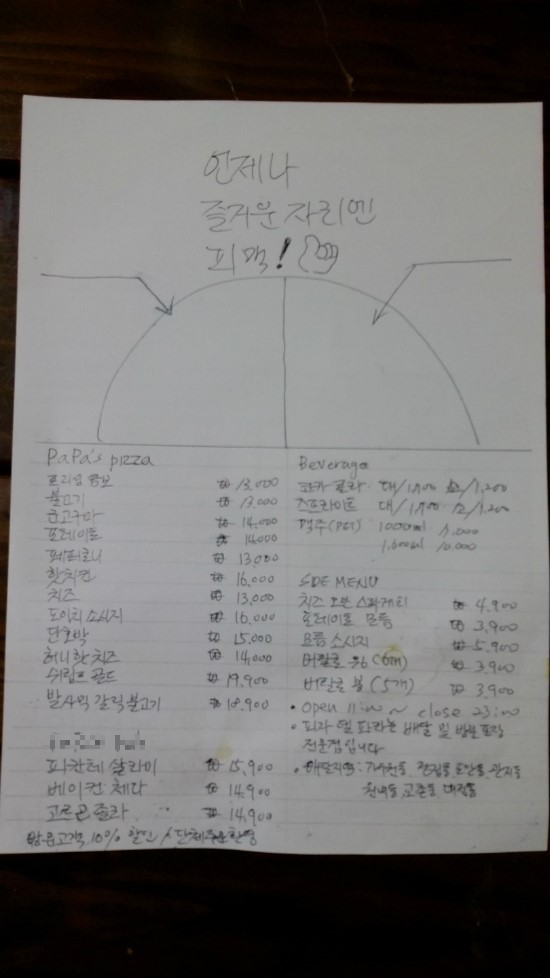 언제나
즐거운 자리엔
피맥!
PaPa's pizza
프리엄 콤보 ₩ 13,000
불고기 ₩ 13,000
군고구마 ₩ 14,000
포테이토 ₩ 14,000
페퍼로니 ₩ 13,000
핫치킨 ₩ 16,000
치즈 ₩ 13,000
도이치소시지 ₩ 16,000
단호박 ₩ 15,000
허니핫치즈 ₩ 14,000
쉬림프골드 ₩ 19,900
발사믹 갈릭 불고기 ₩ 18,900
피칸테 살라미 ₩ 15,900
베이컨 체다 ₩ 14,900
고르곤졸라 ₩ 14,900
방문고객 10% 할인 / 단체주문환영
Beverage
코카콜라 대/1,900 소/1,200
스프라이트 대/1,900 소/1,200
맥주(PET) 1000ml
1,600ml 10,000
SIDE MENU
치즈 오븐 스파게티 ₩ 4,900
포테이토 모듬 ₩ 3,900
모듬 소시지 ₩ 5,900
버팔로 윙 ₩ 3,900
버팔로 봉 (5개) ₩ 3,900
• open 11:00 ~ close 23:00
• 피자 델 파파는 배달 및 방문포장
전문점입니다
• 배달지역: